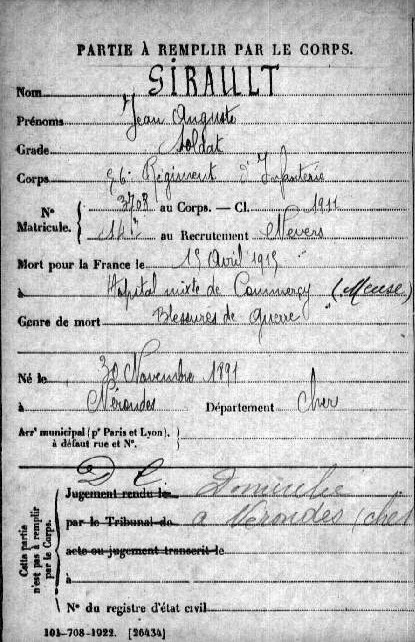 PARTIE À REMPLIR PAR LE CORPS.
Nom GIRAULT
Prénoms Jean Auguste
Grade Soldat
Corps 96e Régiment d'Infanterie
N° Matricule. { 3708 au Corps. — Cl. 1911
au Recrutement Nevers
Mort pour la France le 15 Avril 1915
à Hôpital mixte de Commercy (Meuse)
Genre de mort Blessures de Guerre
Né le 30 Novembre 1891
à Nérondes Département Cher
Arrt municipal (pr Paris et Lyon), à défaut rue et N°. }
D C
Cette partie n'est pas à remplir par le Corps. {
Jugement rendu le Domicilié
par le Tribunal de à Nérondes (Cher
acte ou jugement transcrit le
à
N° du registre d'état civil
101-708-1922. [26434]